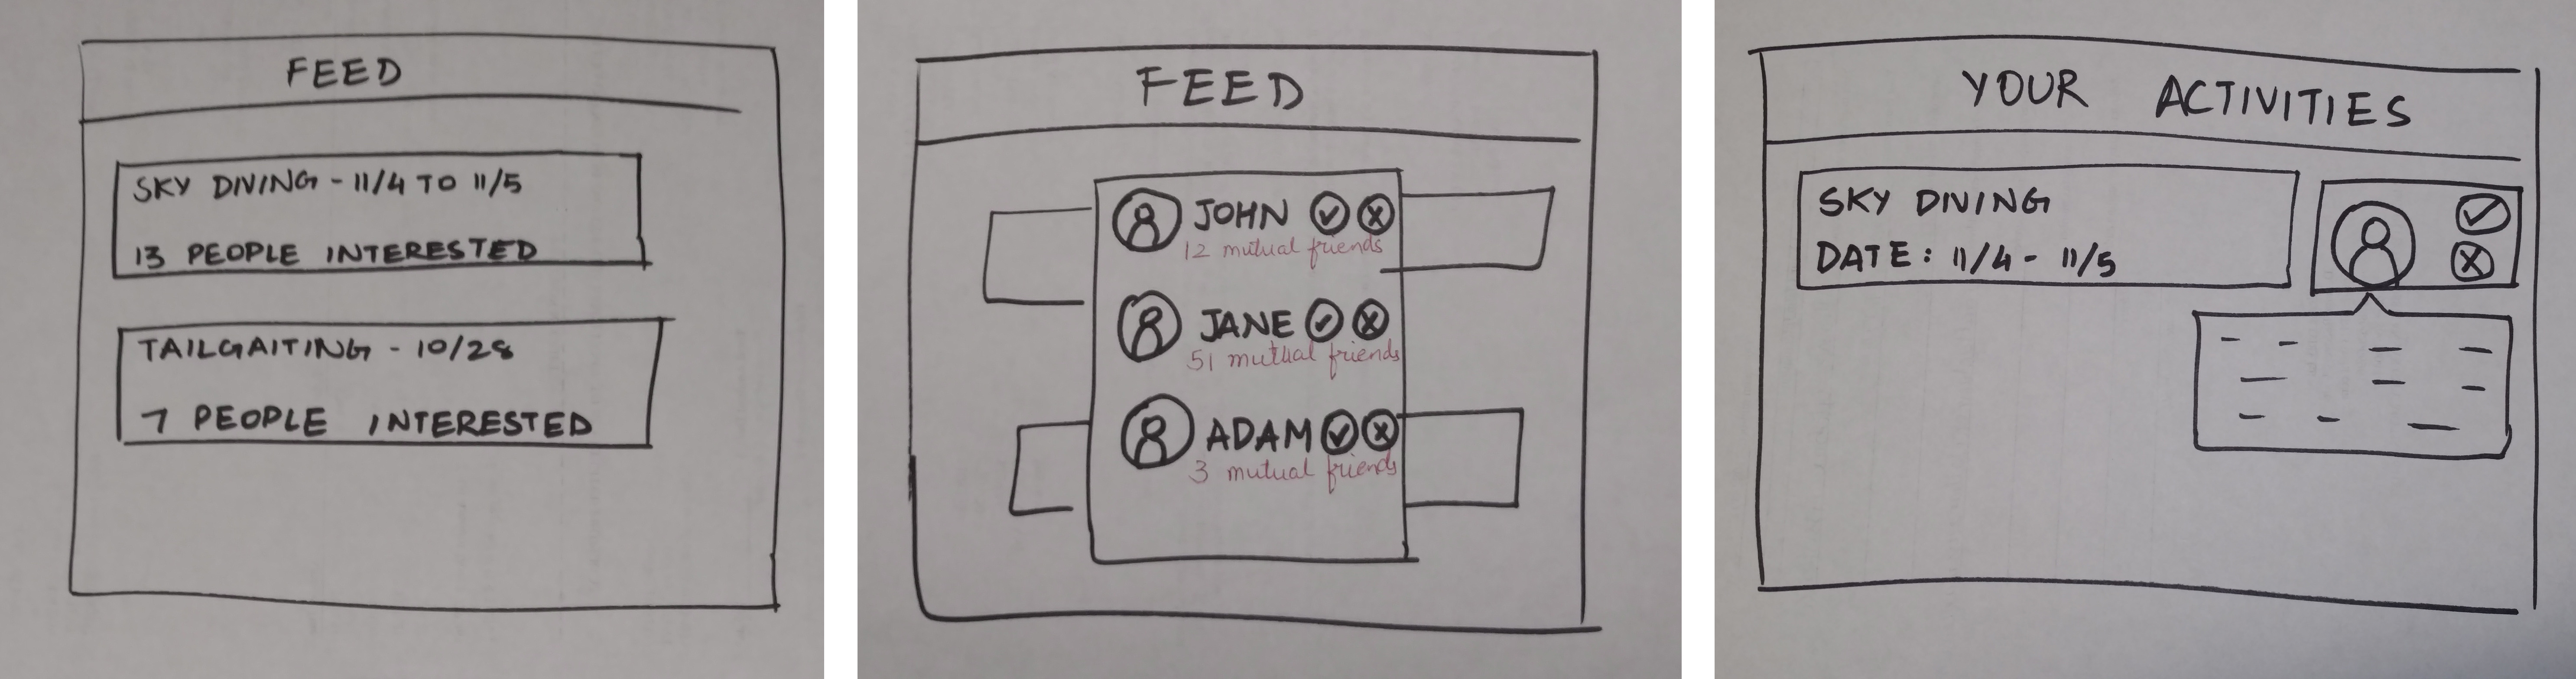 FEED
SKY DIVING - 11/4 TO 11/5
13 PEOPLE INTERESTED
TAILGAITING - 10/28
7 PEOPLE INTERESTED
FEED
JOHN
12 mutual friends
JANE
51 mutual friends
ADAM
3 mutual friends
YOUR ACTIVITIES
SKY DIVING
DATE: 11/4 - 11/5